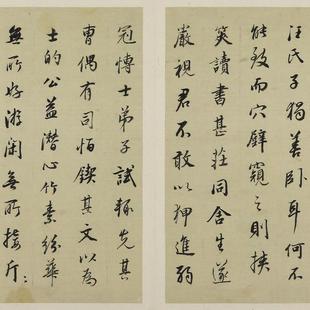 汪氏子獨善卧耳何不
能致而穴壁窺之則挾
筴讀書甚莊同舍生遂
嚴視君不敢以狎進弱
冠博士弟子試輒先其
曹偶有司怕鍥其文以為
士的公益潛心竹素紛華
無所好游閑無所接斤〻